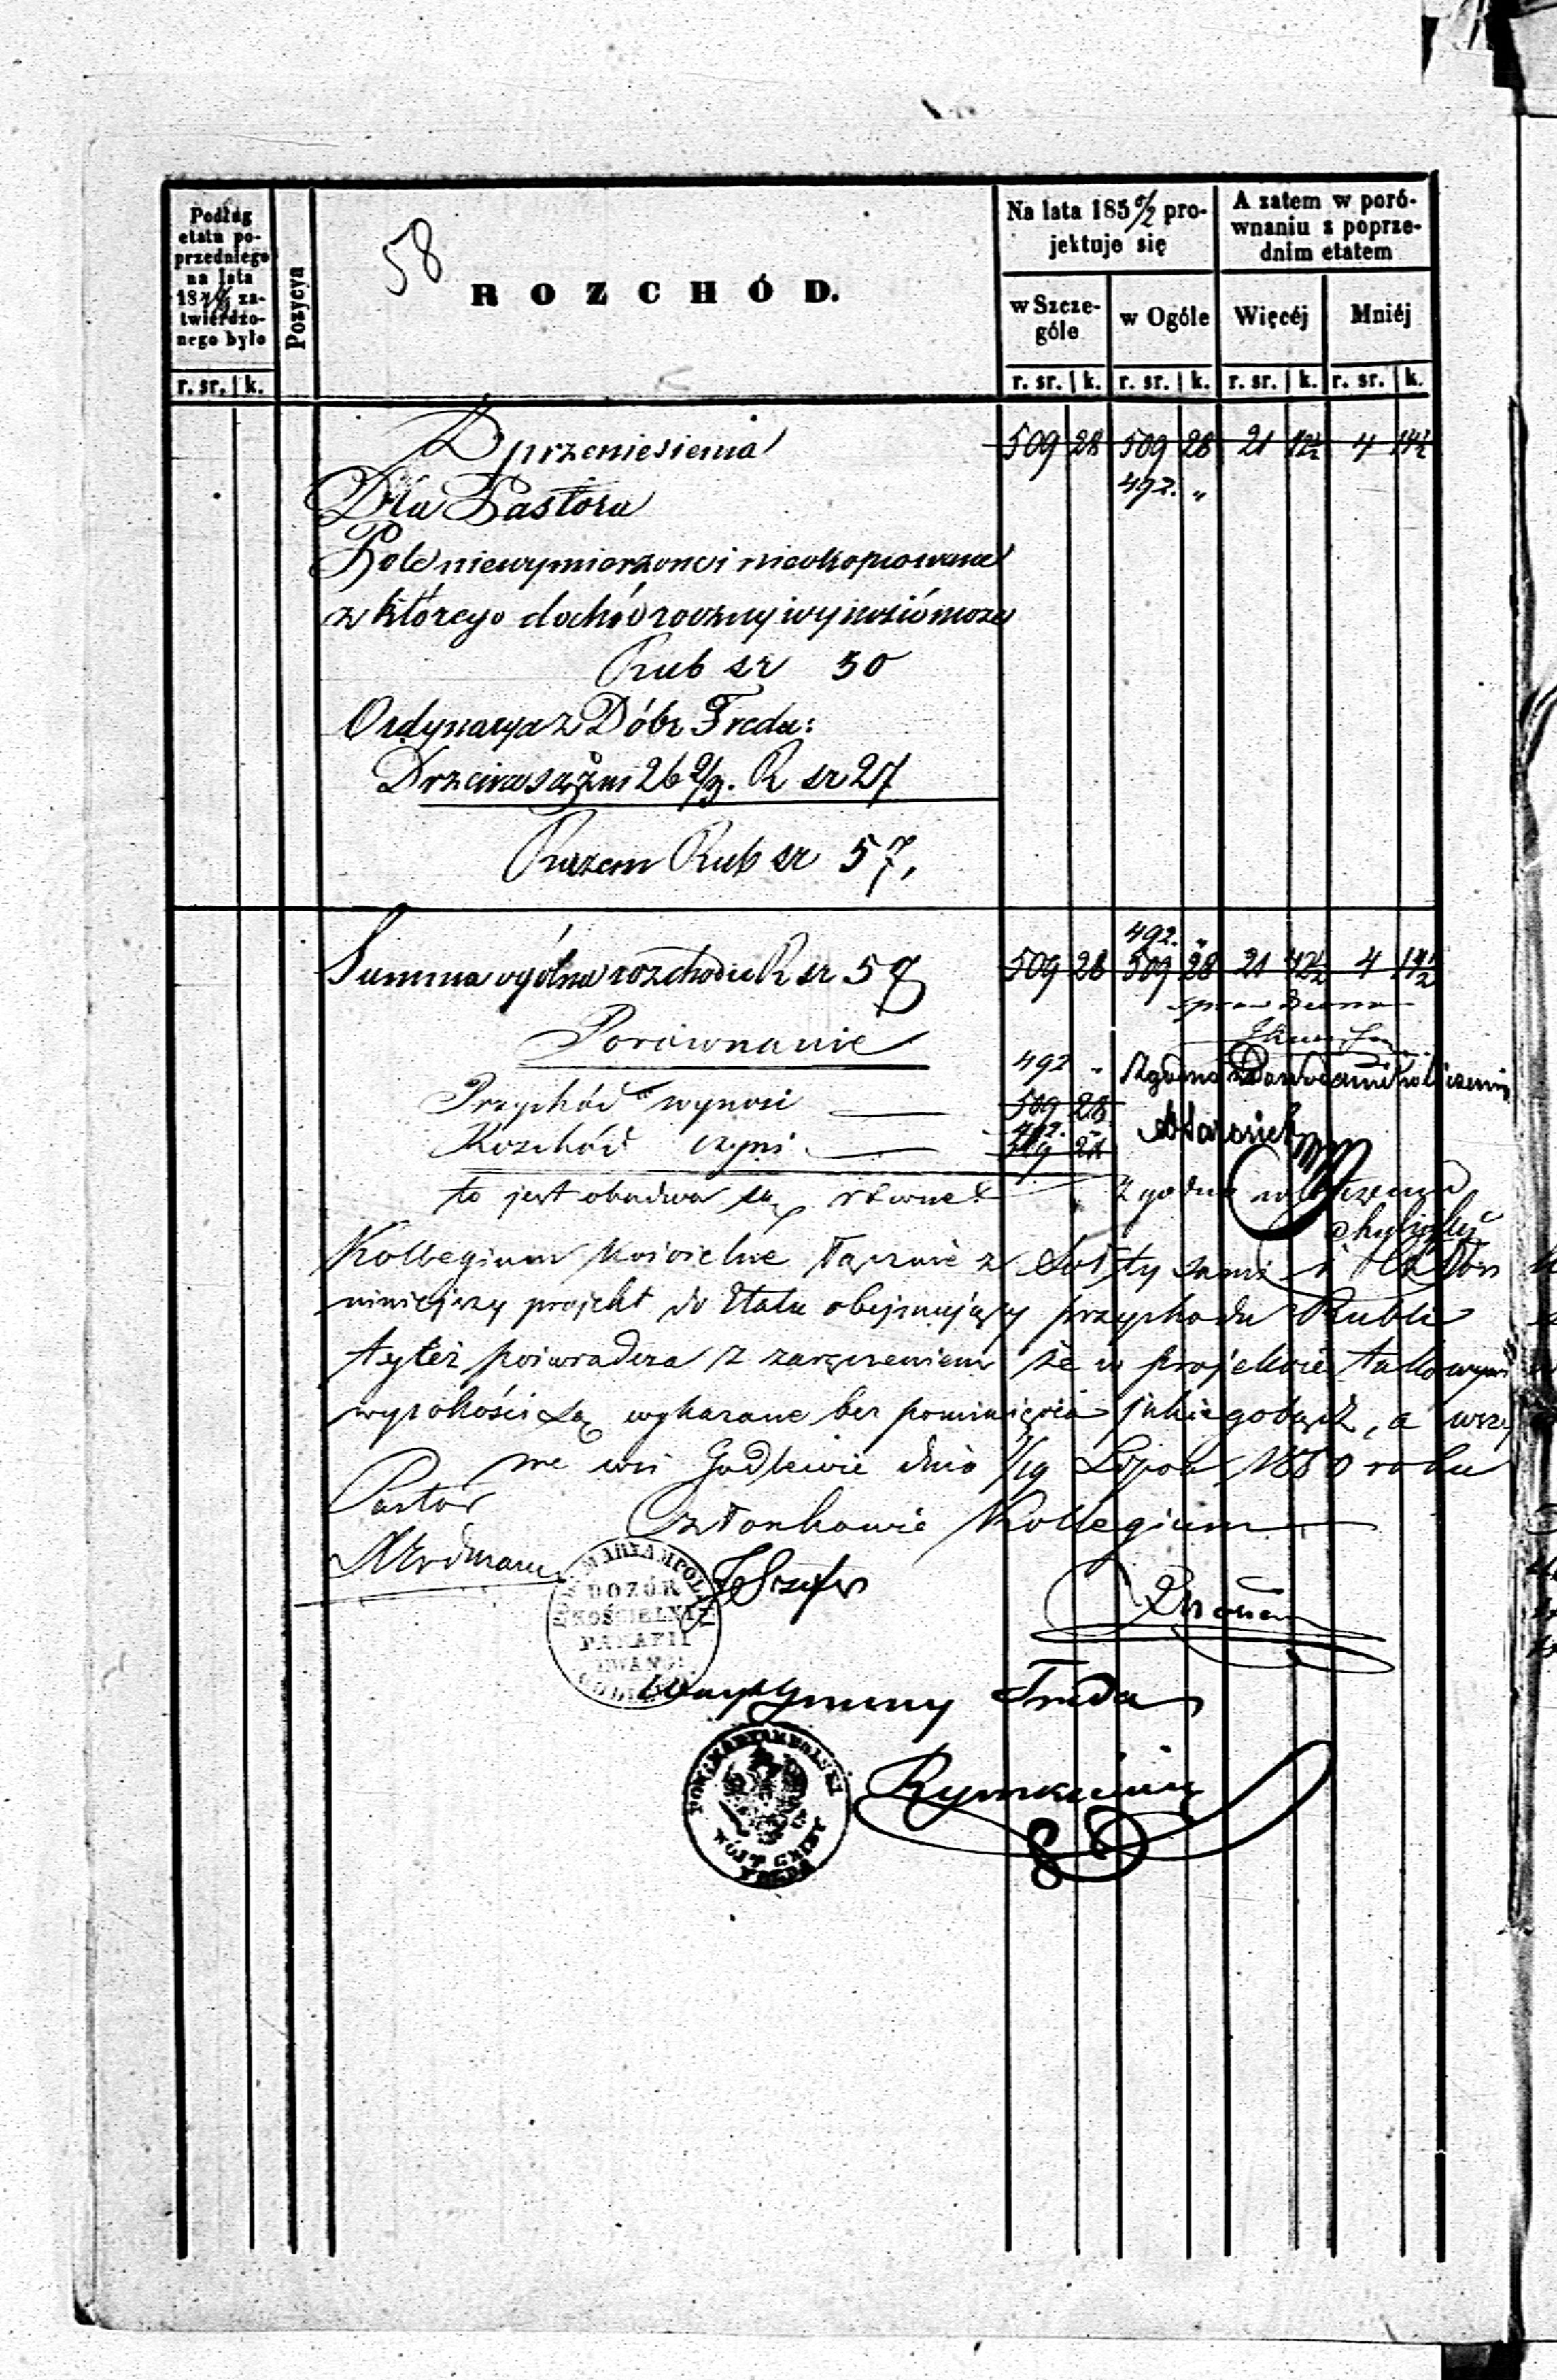 58
Podług etatu poprzedniego na lata zatwierdzonego było
Pozycya
ROZCHÓD.
Na lata 185 0/2 projektuje się
A zatem w porównaniu z poprzednim etatem
w Szczególe
w Ogóle
Więcéj
Mniéj
r. sr. k. r. sr. k. r. sr. k. r. sr. k. r. sr. k.
Z przeniesienia 509 28 509 28 21 12½ 4 14½
492. "
Dla Pastora
Pole niewymierzone i nieokopcowane
z którego dochód roczny wynosić może
Rub sr 30
Ordynarya z Dóbr Freda:
Drzewa sążni 26 2/3. R sr 27
Razem Rub sr 57,
492. "
Summa ogólna rozchodu R sr 57 509 28 509 28 21 12½ 4 14½
Porównanie
492 "
Przychód wynosi 509 28
492. "
Rozchód czyni 509 28
to jest obadwa są równe
Zgodno z Dowodami i obliczeniem
Kollegium Kościelne łącznie z
niniejszy projekt do Etatu obejmujący przychodu Rubli
tyleż poświadcza z zaręczeniem że w projekcie takowym
wysokości są wykazane bez pominięcia jakiegobądź, a
we wsi Godlewie dnia 1/19 Lipca 1850 roku
Pastor
Członkowie Kollegium
Erdmann
MARYAMPOL
DOZÓR
KOŚCIELNY
PARAFII
EWANG:
Wójt Gminy Freda
POW: MARYAMPOLSKI
WÓJT GMINY
FREDA
Rymkiewicz